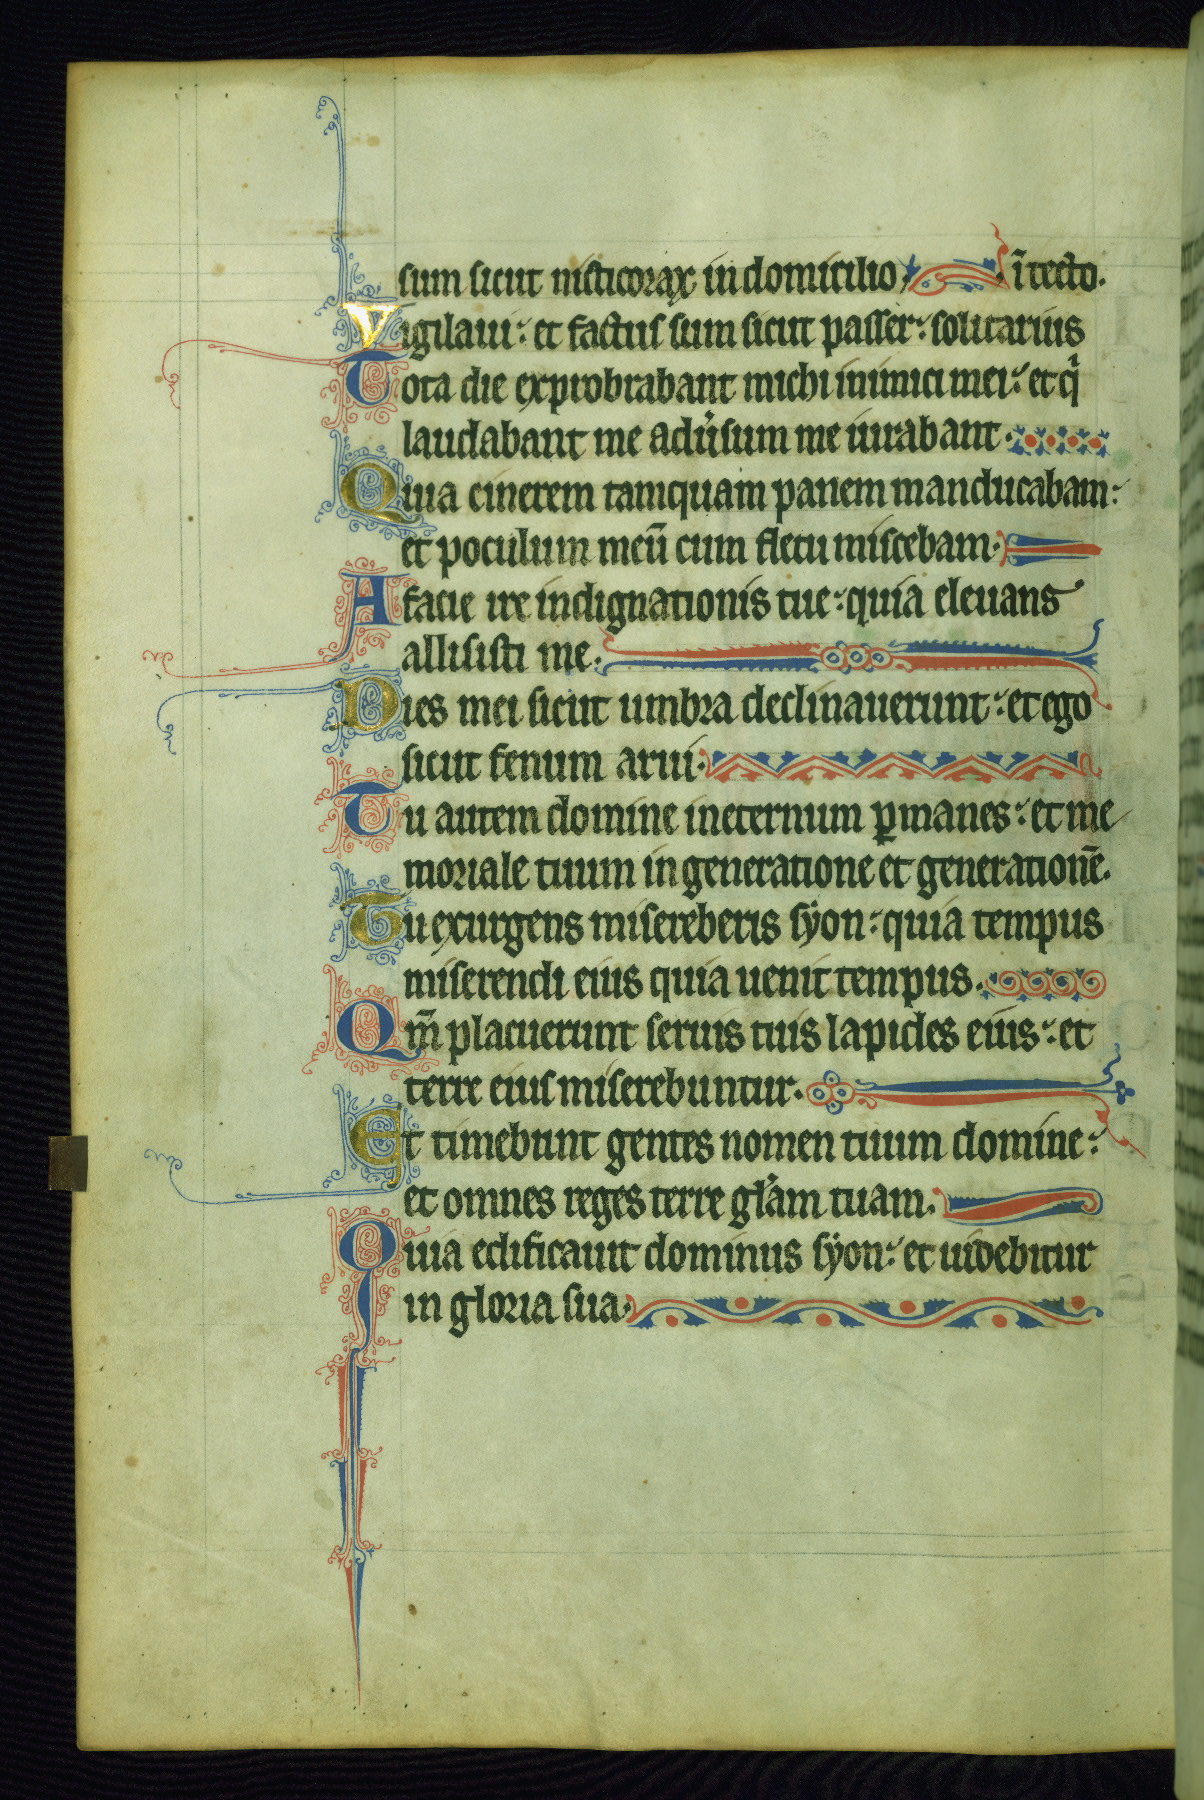 sum sicut nicticorax in domicilio. ī tecto.
Vigilaui: et factus sum sicut passer: solitarius
Tota die exprobrabant michi inimici mei: et q̇
laudabant me adu̇sum me iurabant.
Quia cinerem tamquam panem manducabam:
et poculum meū cum fletu miscebam.
A facie ire indignationis tue: quia eleuans
allisisti me.
Dies mei sicut umbra declinauerunt: et ego
sicut fenum arui.
Tu autem domine in eternum ꝑmanes: et me
moriale tuum in generatione et generationē.
Tu exurgens misereberis syon: quia tempus
miserendi eius quia uenit tempus.
Qm̄ placuerunt seruis tuis lapides eius: et
terre eius miserebuntur.
Et timebunt gentes nomen tuum domine:
et omnes reges terre gl̄am tuam.
Quia edificauit dominus syon: et uidebitur
in gloria sua.